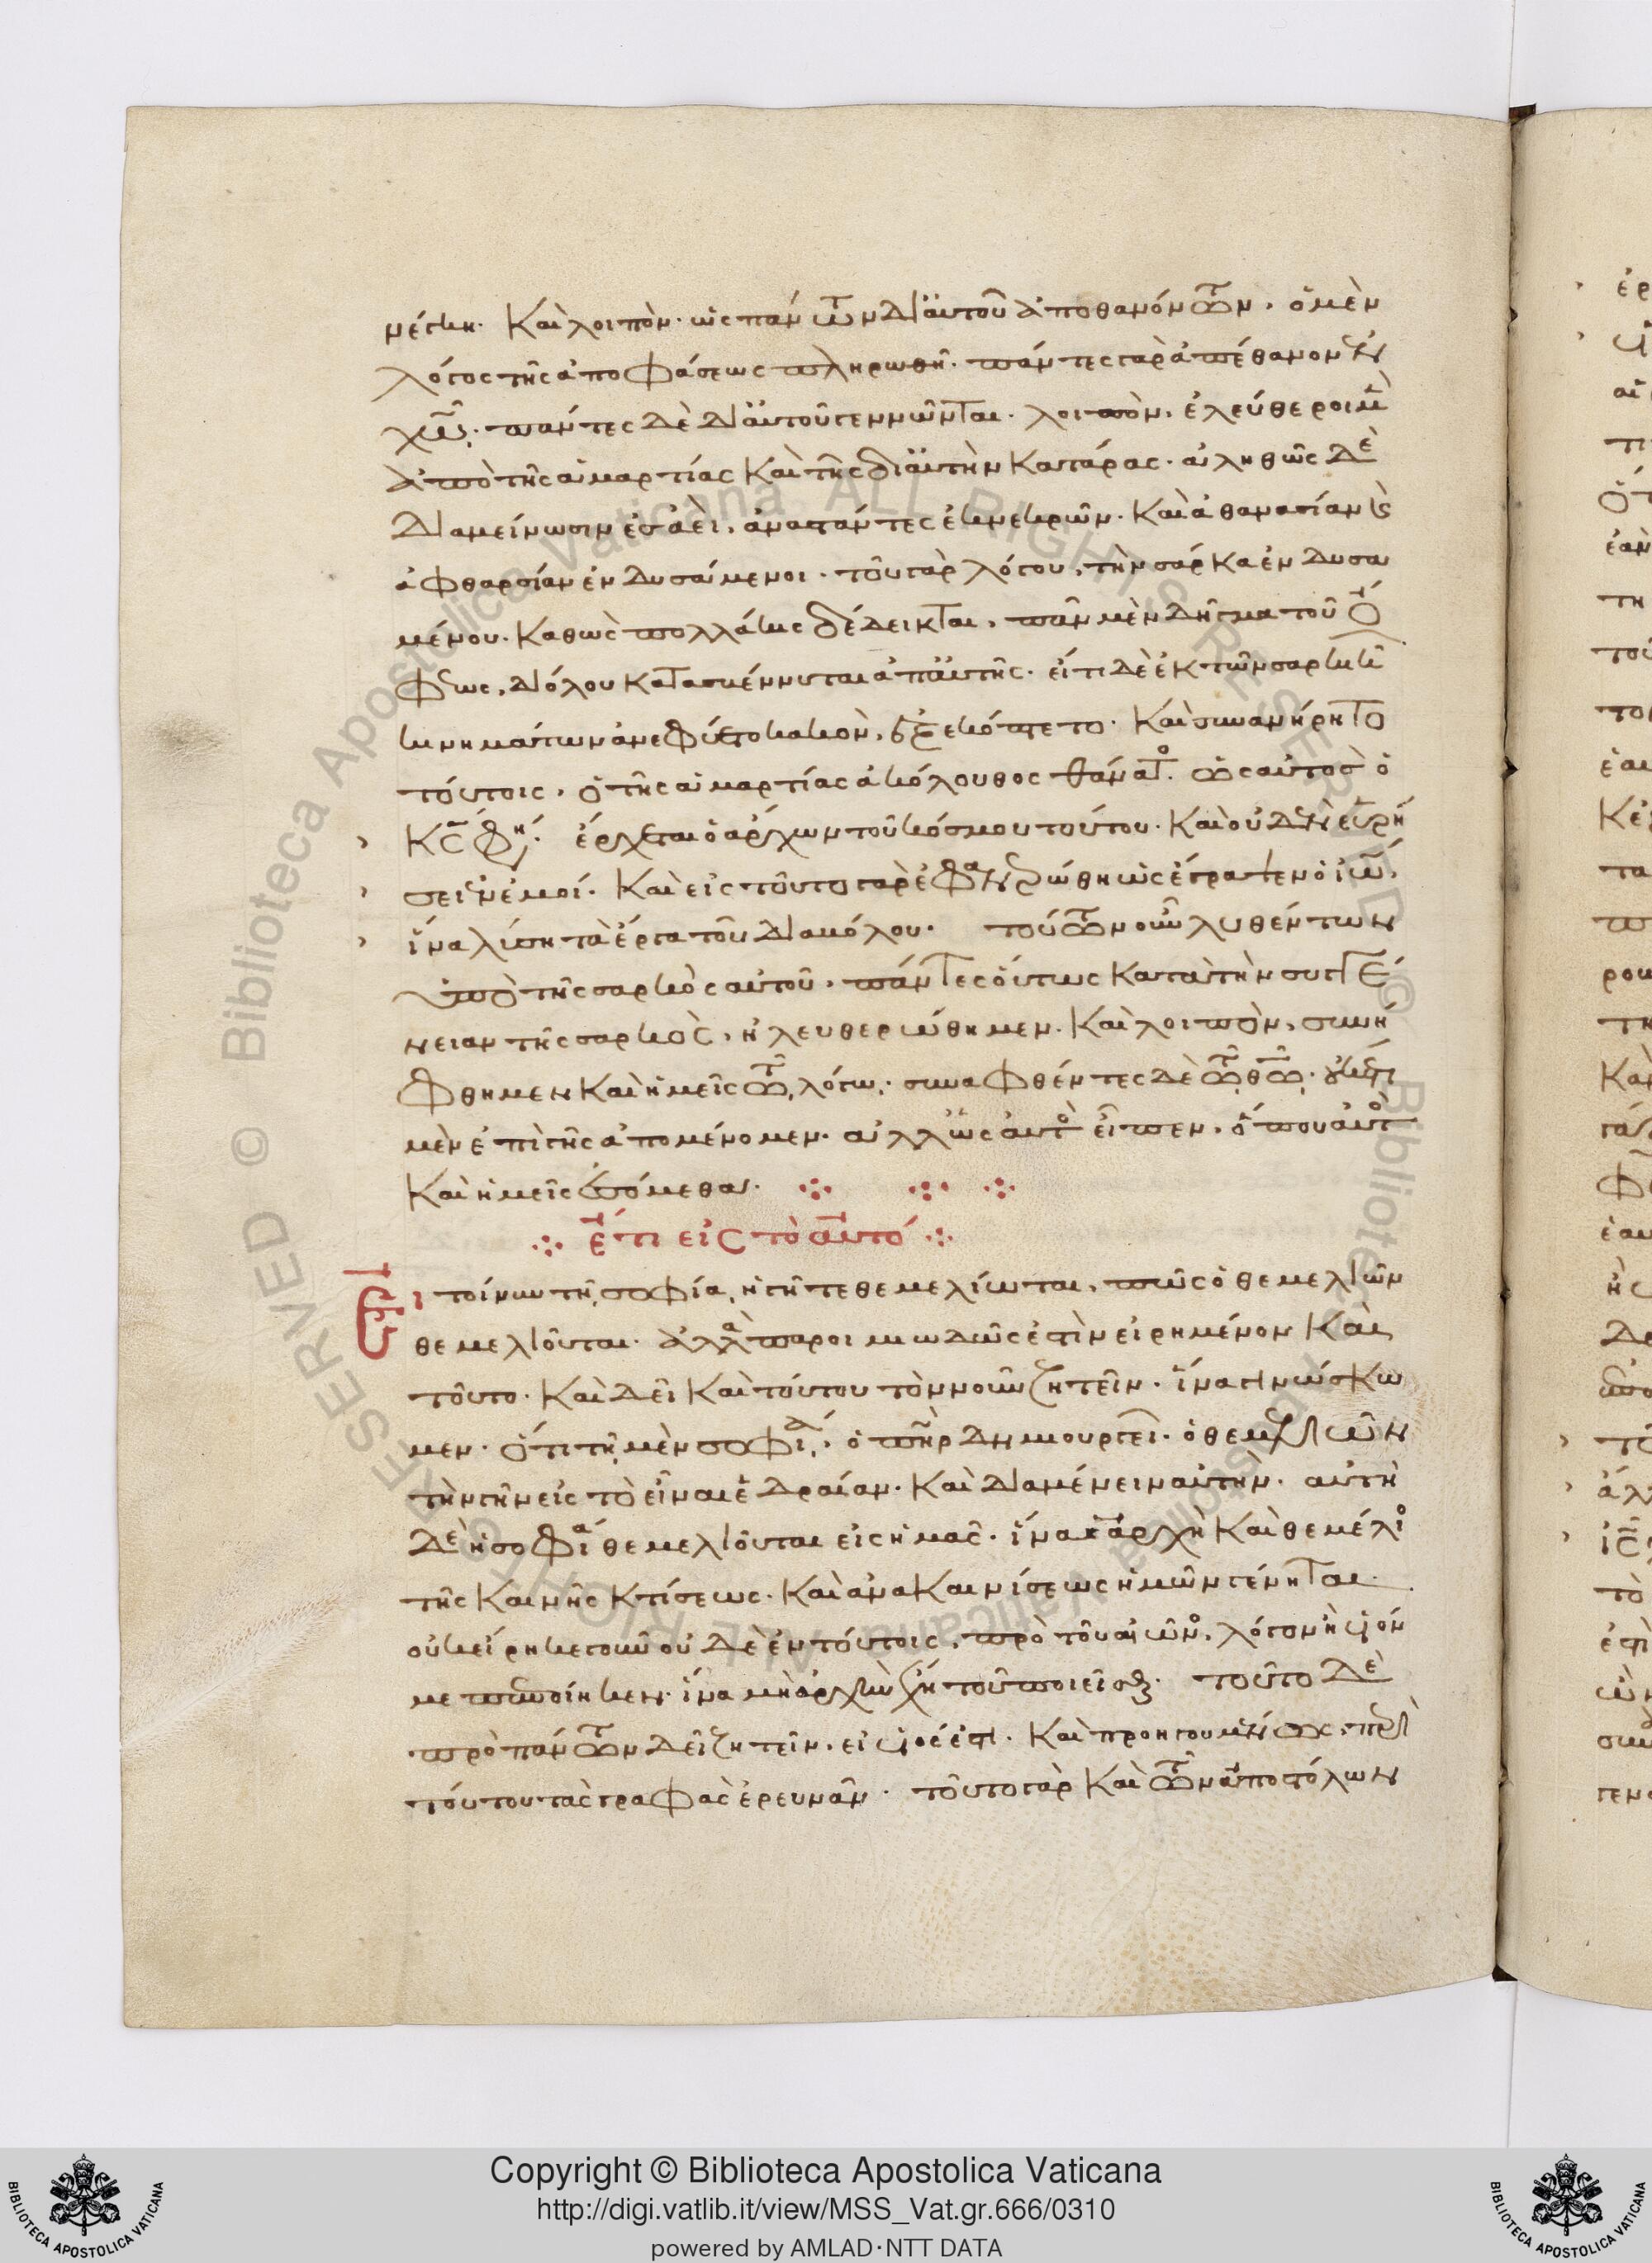 νέγκη· Καὶ λοιπὸν· ὡς πάντων δι' αὐτοῦ ἀποθανόντων, ὁ μὲν
λόγος τῆς ἀποφάσεως πληρωθῆ· πάντες γὰρ ἀπέθανον ἐν
χῶ· πάντες δὲ δι' αὐτοῦ γεννῶνται· λοιπὸν, ἐλεύθεροι μὲν
ἀπὸ τῆς ἁμαρτίας καὶ τῆς δι' αὐτὴν κατάρας· ἀληθῶς δὲ
διαμείνωσιν ἐσαεὶ, ἀναστάντες ἐκ νεκρῶν· καὶ ἀθανασίαν καὶ
ἀφθαρσίαν ἐνδυσάμενοι· τοῦ γὰρ λόγου, τὴν σάρκα ἐνδυσα
μένου· καθὼς πολλάκις δέδεικται, πᾶν μὲν δῆγμα τοῦ ὄ
φεως, διόλου κατασβέννυται ἀπ' αὐτῆς· εἴ τι δὲ ἐκ τῶν σαρκικῶν
κινημάτων ἀνεφύετο κακὸν, ἐξεκόπτετο· καὶ συνανήρητο
τούτοις, ὁ τῆς ἁμαρτίας ἀκόλουθος θάνατος· ὡς αὐτὸς ὁ
κς φησίν· ἔρχεται ὁ ἄρχων τοῦ κόσμου τούτου· καὶ οὐδὲν εὑρή
σει ἐν ἐμοί· καὶ εἰς τοῦτο γὰρ ἐφανερώθη ὡς ἔγραψεν ὁ ἰω,
ἵνα λύση τὰ ἔργα τοῦ διαβόλου· τούτων οὖν λυθέντων
ὑπὸ τῆς σαρκὸς αὐτοῦ, πάντες οὕτως κατὰ τὴν συγγέ
νειαν τῆς σαρκὸς, ἠλευθερώθημεν· καὶ λοιπὸν, συνή
φθημεν καὶ ἡμεῖς τῶ λόγω· συναφθέντες δὲ τῶ θω, οὐκέτι
μὲν ἐπὶ γῆς ἀπομένομεν· ἀλλ' ὡς αὐτὸς εἶπεν, ὅπου αὐτὸς
καὶ ἡμεῖς ἐσόμεθα·
ἔτι εἰς τὸ αὐτό
Εἰ τοίνυν τῆ σοφία, ἡ γῆ τεθεμελίωται, πῶς ὁ θεμελιῶν
θεμελιοῦται· ἀλλὰ παροιμιωδῶς ἐστὶν εἰρημένον καὶ
τοῦτο· καὶ δεῖ καὶ τούτου τὸν νοῦν ζητεῖν· ἵνα γινώσκω
μεν· ὅτι τῆ μὲν σοφία, ὁ πηρ δημιουργεῖ· ὁ θεμελιῶν
τὴν γῆν εἰς τὸ εἶναι ἑδραίαν· καὶ διαμένειν αὐτὴν· αὐτὴ
δὲ ἡ σοφία θεμελιοῦται εἰς ἡμᾶς· ἵνα ἀρχὴ καὶ θεμέλιος
τῆς καινῆς κτίσεως· καὶ ἀνακαινίσεως ἡμῶν γένηται·
οὐκ εἴρηκε γοῦν οὐδὲ ἐν τούτοις, πρὸ τοῦ αἰῶνος, λόγον ἢ υἱόν
με πεποίηκεν· ἵνα μὴ ἀρχὴν ἔχη τοῦ ποιεῖσθαι· τοῦτο δὲ
πρὸ πάντων δεῖ ζητεῖν, εἰ υἱός ἐστι· καὶ προηγουμένως, περὶ
τούτου τὰς γραφὰς ἐρευνᾶν· τοῦτο γὰρ καὶ τῶν ἀποστόλων
Copyright © Biblioteca Apostolica Vaticana
http://digi.vatlib.it/view/MSS_Vat.gr.666/0310
powered by AMLAD·NTT DATA